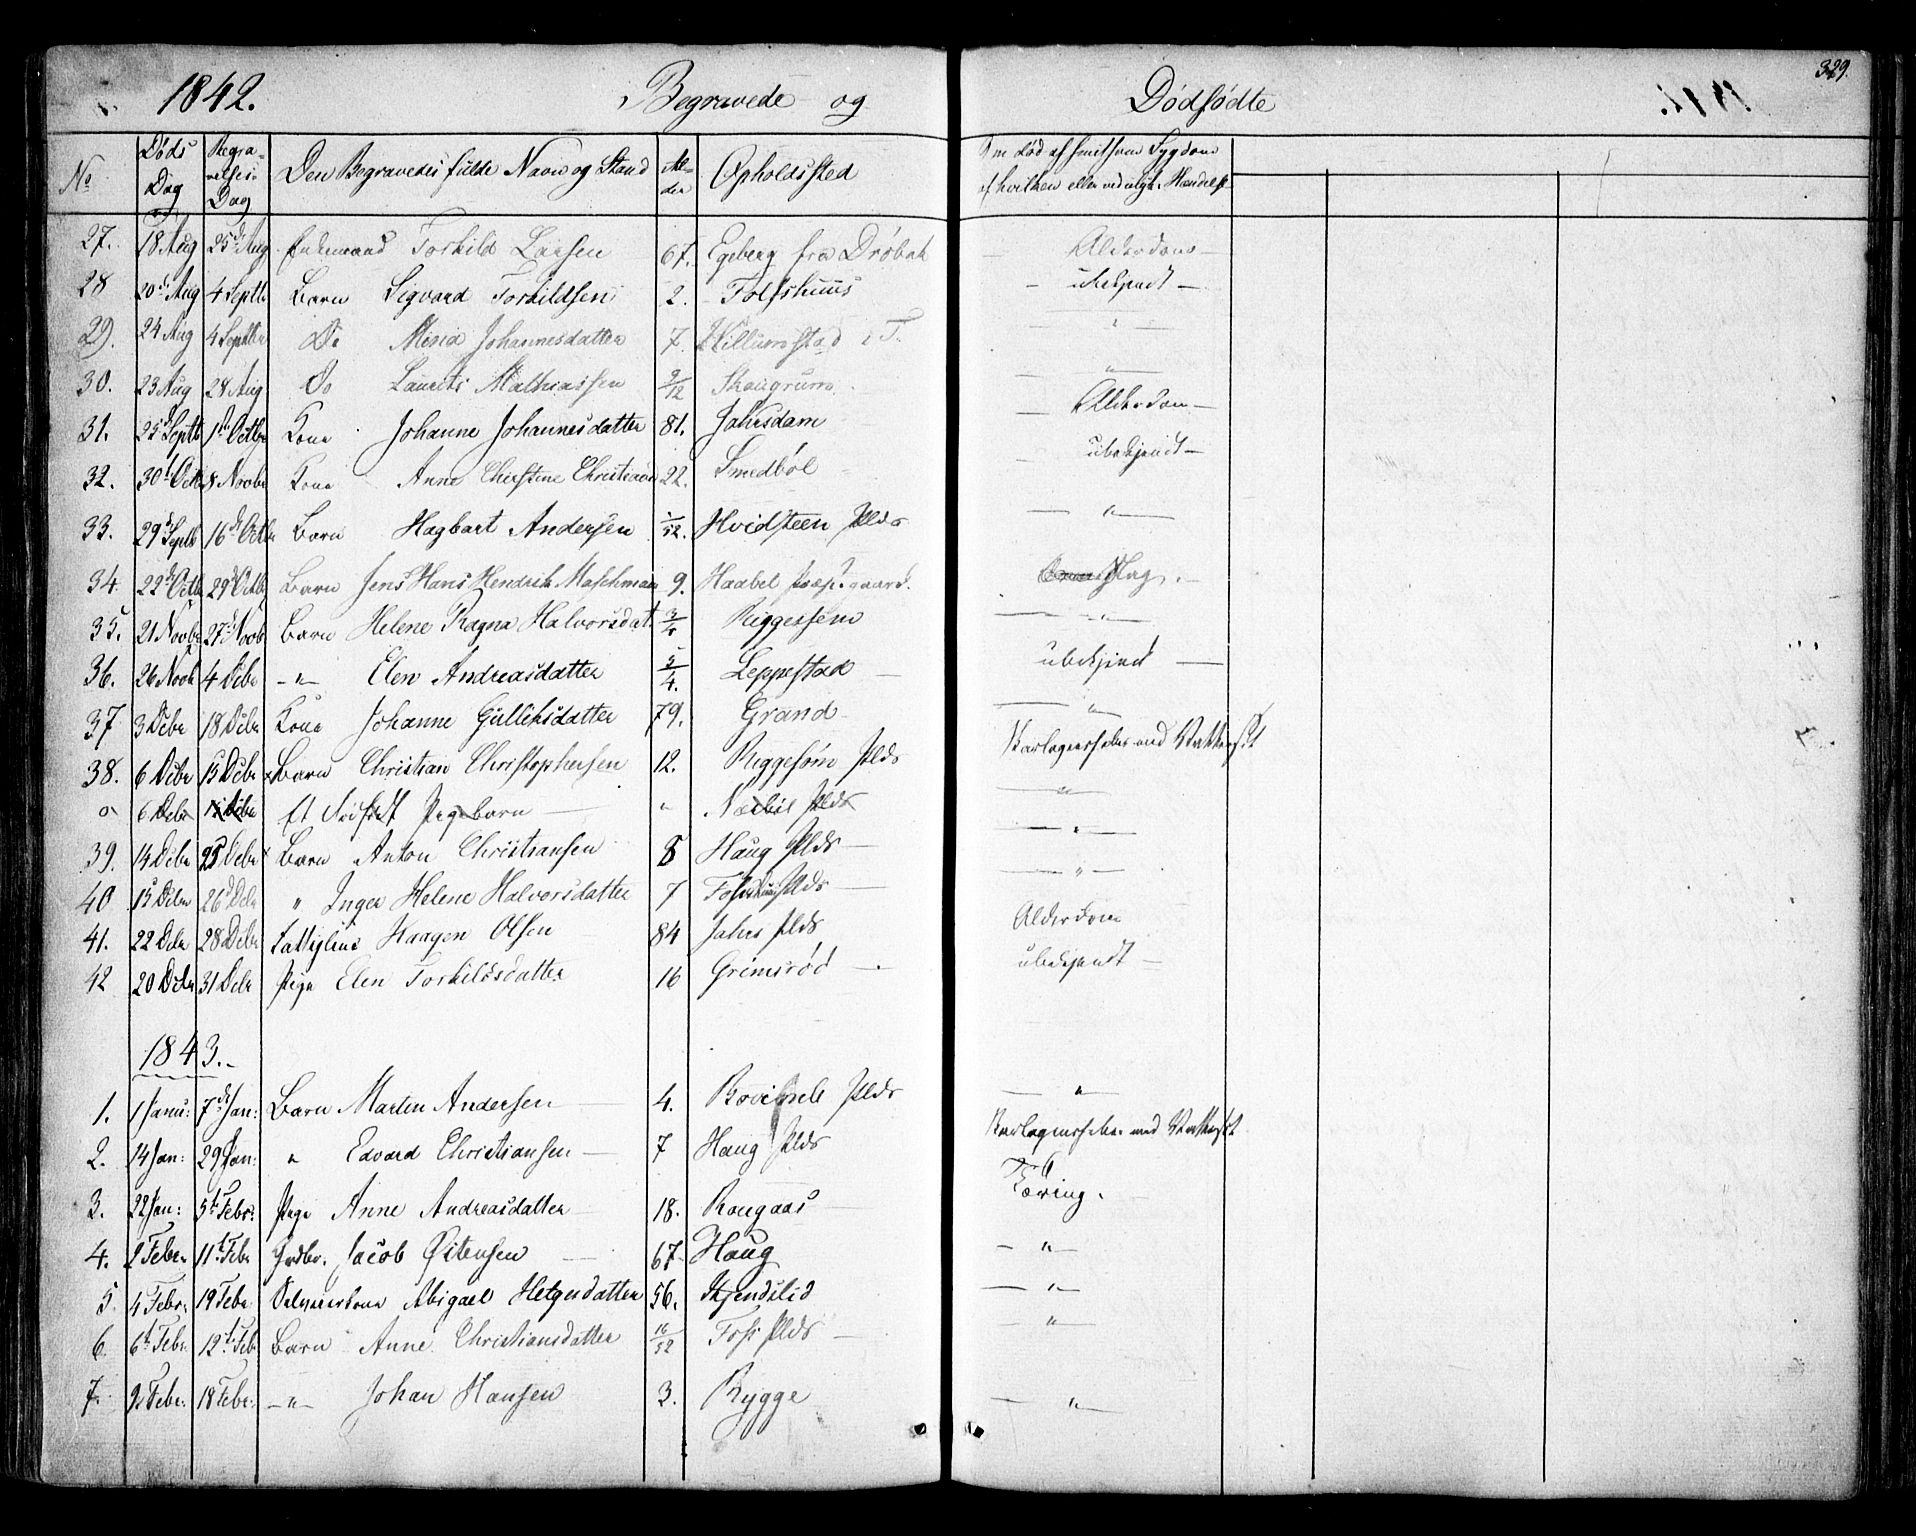 1842. Begravede og Dødfødte 329.
No Døds Dag Begravelses Dag Den Begravedes fulde Navn og Stand Alder Opholdssted Om død af smitsom Sygdom af hvilken eller ved ulykk. Hændelse
27. 18 Aug 25d Aug Enkemand Torkild Larsen 67. Egeberg fra Drøbak Alderdom
28 20d Aug 4 Septb Barn Sigvard Torkildsen 2. Tofshuus ubekjendt
29. 24 Aug 4 Septbr Do Mina Johannesdatter 7 Willumstad i T. "
30. 23 Aug 28 Aug Do Laurits Mathiassen 9/12 Skaugrum "
31. 25d Septb 1st Octbr Kone Johanne Johannesdatter 81. Jahrsdam Alderdom
32. 30d Oct 8 Novbr Kone Anne Christine Christians 22. Smedbøl ubekjendt
33. 29d Septb 16d Octbr Barn Hagbart Andersen 1/52. Hvidsteen Plds "
34 22d Octb 29d Octb Barn Jens Hans Hendrik Maschmann 9. Haabel Præstgaard. Slag.
35. 21 Novbr 27d Novb Barn Helene Ragna Halvorsdat. 3/4 Riggessem "
36. 26 Novb 4 Debr " Elen Andreasdatter 5/4. Leppestad ubekjendt
37 3 Debr 18 Debr Kone Johanne Gulliksdatter 79. Grand "
38. 6 Debr 15 Debr Barn Christian Christophersen 12. Riggesøm Plds Skarlagensfeber med Vattersot
o 6 Debr Et Dødfødt Pigebarn " Næsbøl Plds "
39. 14 Debr 25 Debr Barn Anton Christiansen 8 Haug Plds "
40 15 Debr 26d Debr " Inger Helene Halvorsdatter 7 Plds "
41. 22 Debr 28 Debr Fattiglem Haagen Olsen 84 Jahrs Plds Alderdom
42 20 Debr 31 Debr Pige Elen Torkildsdatter 16 Grimsrød ubekjendt
1843.
1. 1 Janu: 7d Jan: Barn Martin Andersen 4. Plds "
2. 14 Jan: 29 Jan: " Edvard Christiansen 7 Haug Plds Skarlagensfeber med Vattersot
3. 22 Jan: 5t Febr: Pige Anne Andreasdatter 18. Rougaas Tæring.
4. 2 Febr. 11t Febr Grdbr. Jacob Østensen 67 Haug "
5. 4 Febr. 19 Febr Selveierkone Abigael Helgesdatter 56. Skjendslid "
6. 6t Febr 12t Feb Barn Anne Christiansdatter 16/52 Foss Plds "
7. 9 Febr. 18 Febr. " Johan Hansen 3. Rygge "